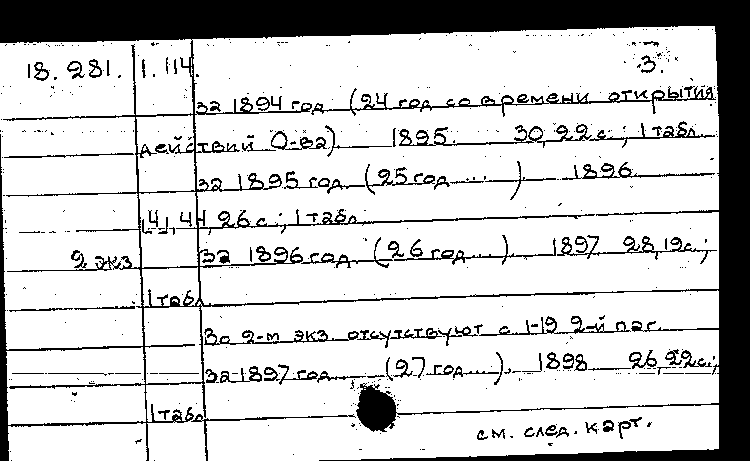 18.281. 1.114. 3.
за 1894 год (24 год со времени открытия
действий О-ва). 1895. 30, 22 с.; 1 табл.
за 1895 год. (25 год ... ). 1896.
[4], 44, 26 с.; 1 табл.
2 экз. за 1896 год. (26 год ...). 1897. 28, 19 с.;
1 табл.
Во 2-м экз. отсутствуют с. 1-19 2-й паг.
за 1897 год. (27 год ...). 1898. 26, 22 с.;
1 табл.
см. след. карт.